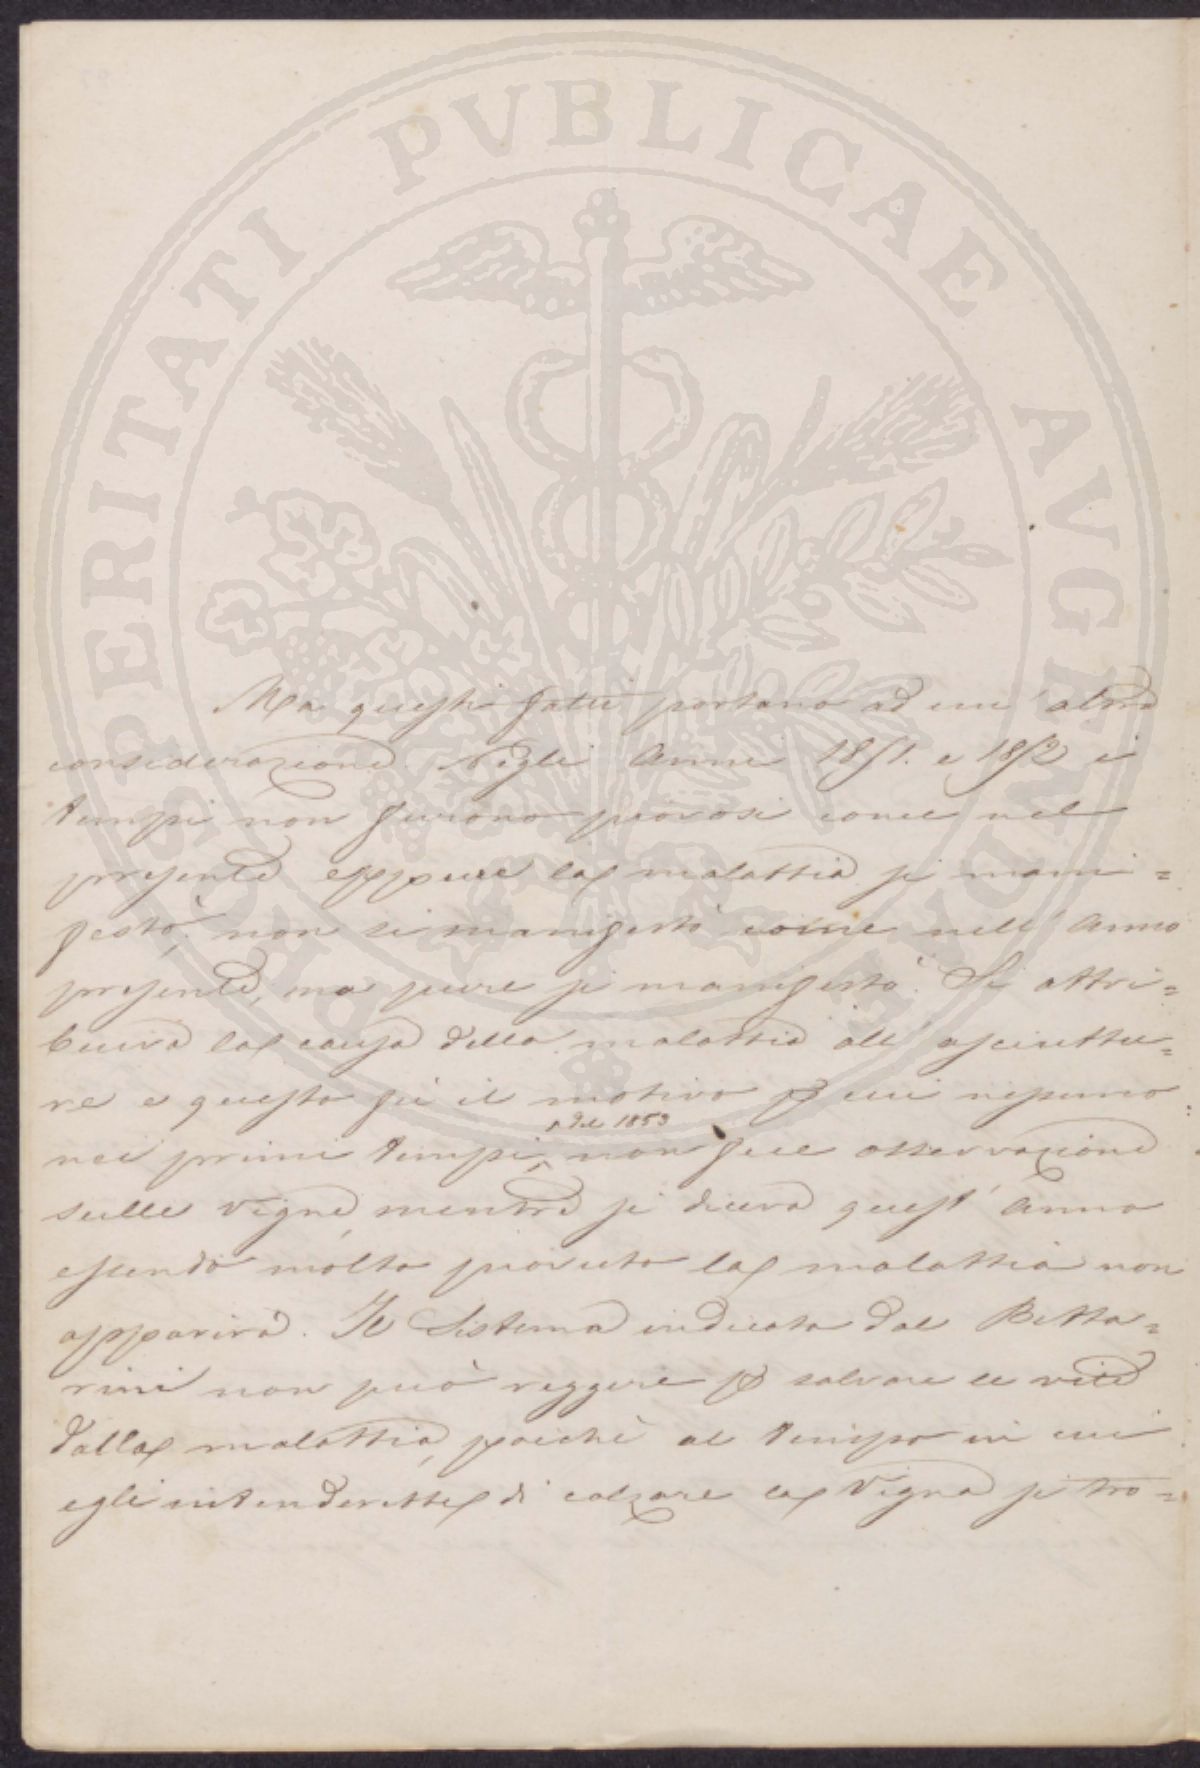 PROSPERITATI PVBLICAE AVGENDAE
Ma questi fatti portano ad un' altra
considerazione. Negli Anni 1851. e 1852 i
tempi non furono piovosi come nel
presente eppure la malattia si mani=
festò; non si manifestò come nell' Anno
presente, ma pure si manifestò. Si attri=
buiva la causa della malattia all' asciuttu=
re e questo fù il motivo p cui nessuno
del 1853
nei primi tempi non fece osservazione
sulle Vigne, mentre si diceva quest' Anno
essendo molto piovuto la malattia non
apparirà. Il Sistema indicato dal Betta=
rini non può reggere p salvare le viti
dalla malattia, poichè al tempo in cui
egli intenderebbe di calzare la Vigna si tro=